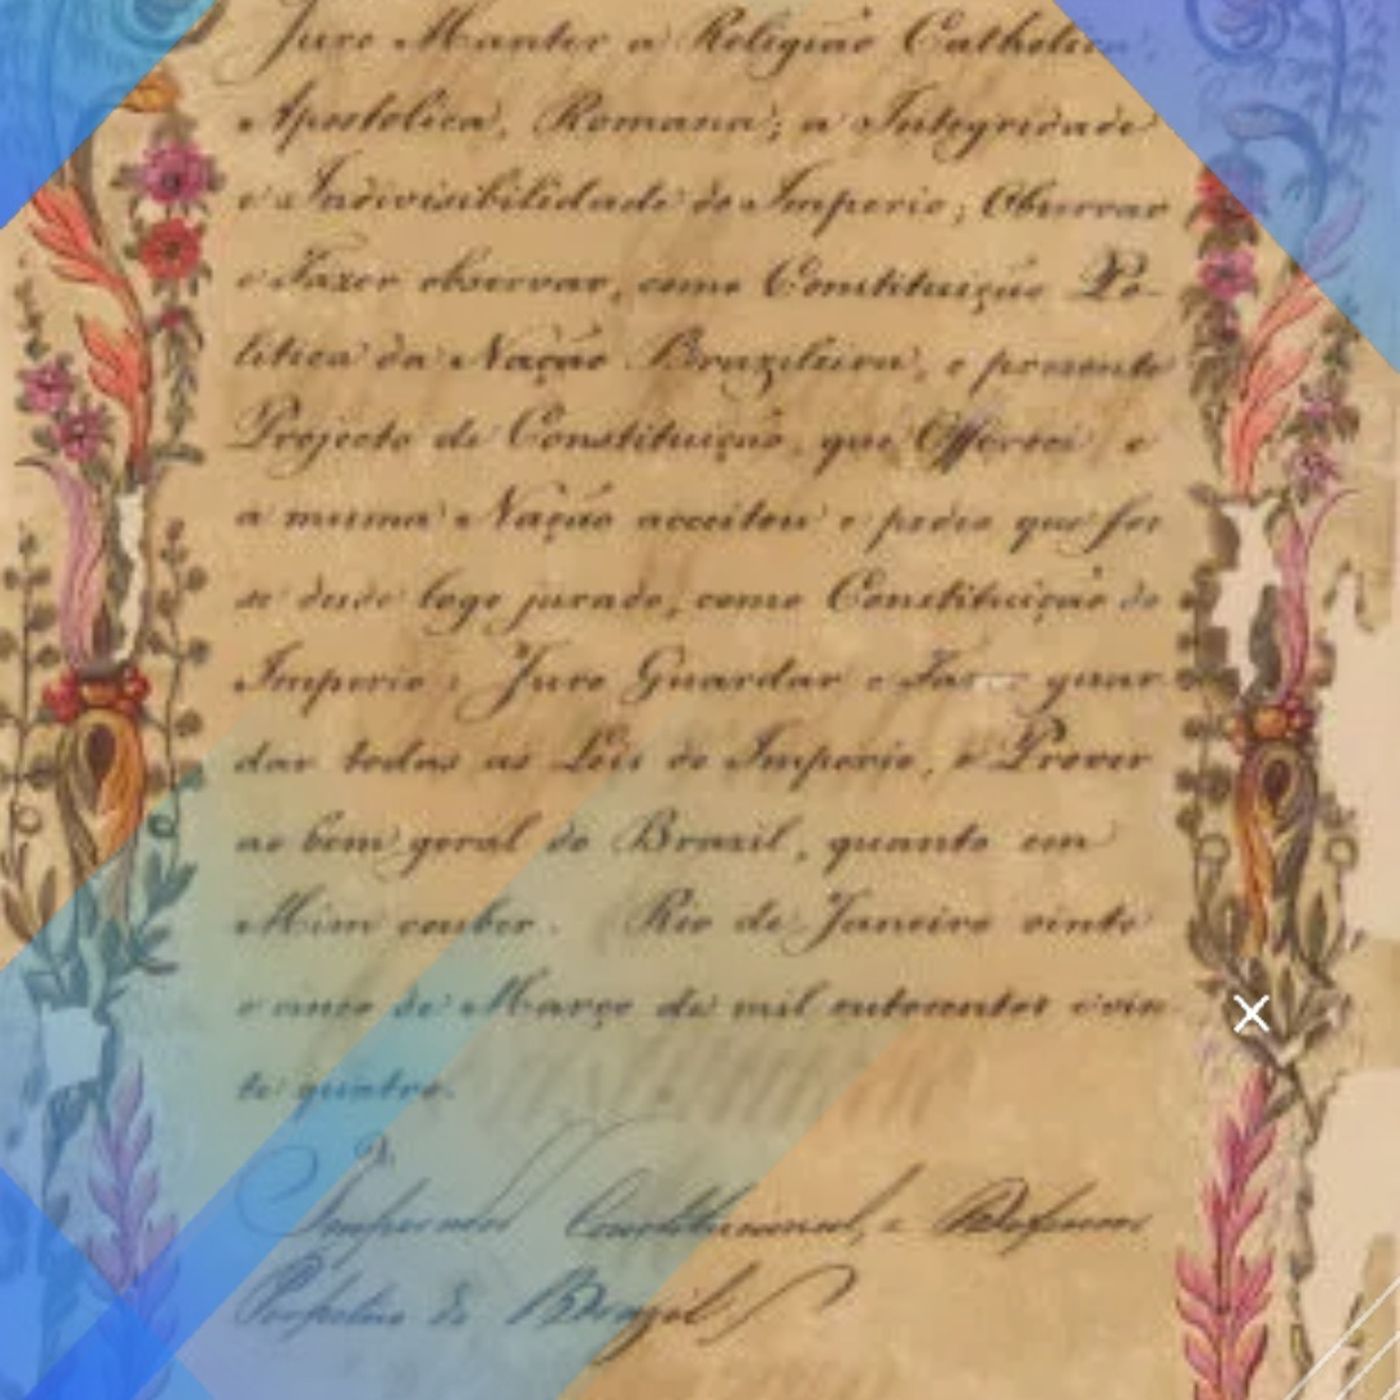 Juro Manter a Religião Catholica
Apostolica, Romana; a Integridade
e Indivisibilidade do Imperio; Observar
e Fazer observar, como Constituição Po-
litica da Nação Brazileira, o presente
Projecto de Constituição, que Offereci, e
a mesma Nação acceitou e pedio que fos
se desde logo jurado, como Constituição do
Imperio: Juro Guardar e Fazer guar
dar todas as Leis do Imperio, e Prover
ao bem geral do Brazil, quanto em
Mim couber. Rio de Janeiro vinte
e cinco de Março de mil outocentos e vin
te quatro.
Imperador Constitucional, e Defensor
Perpetuo do Brazil